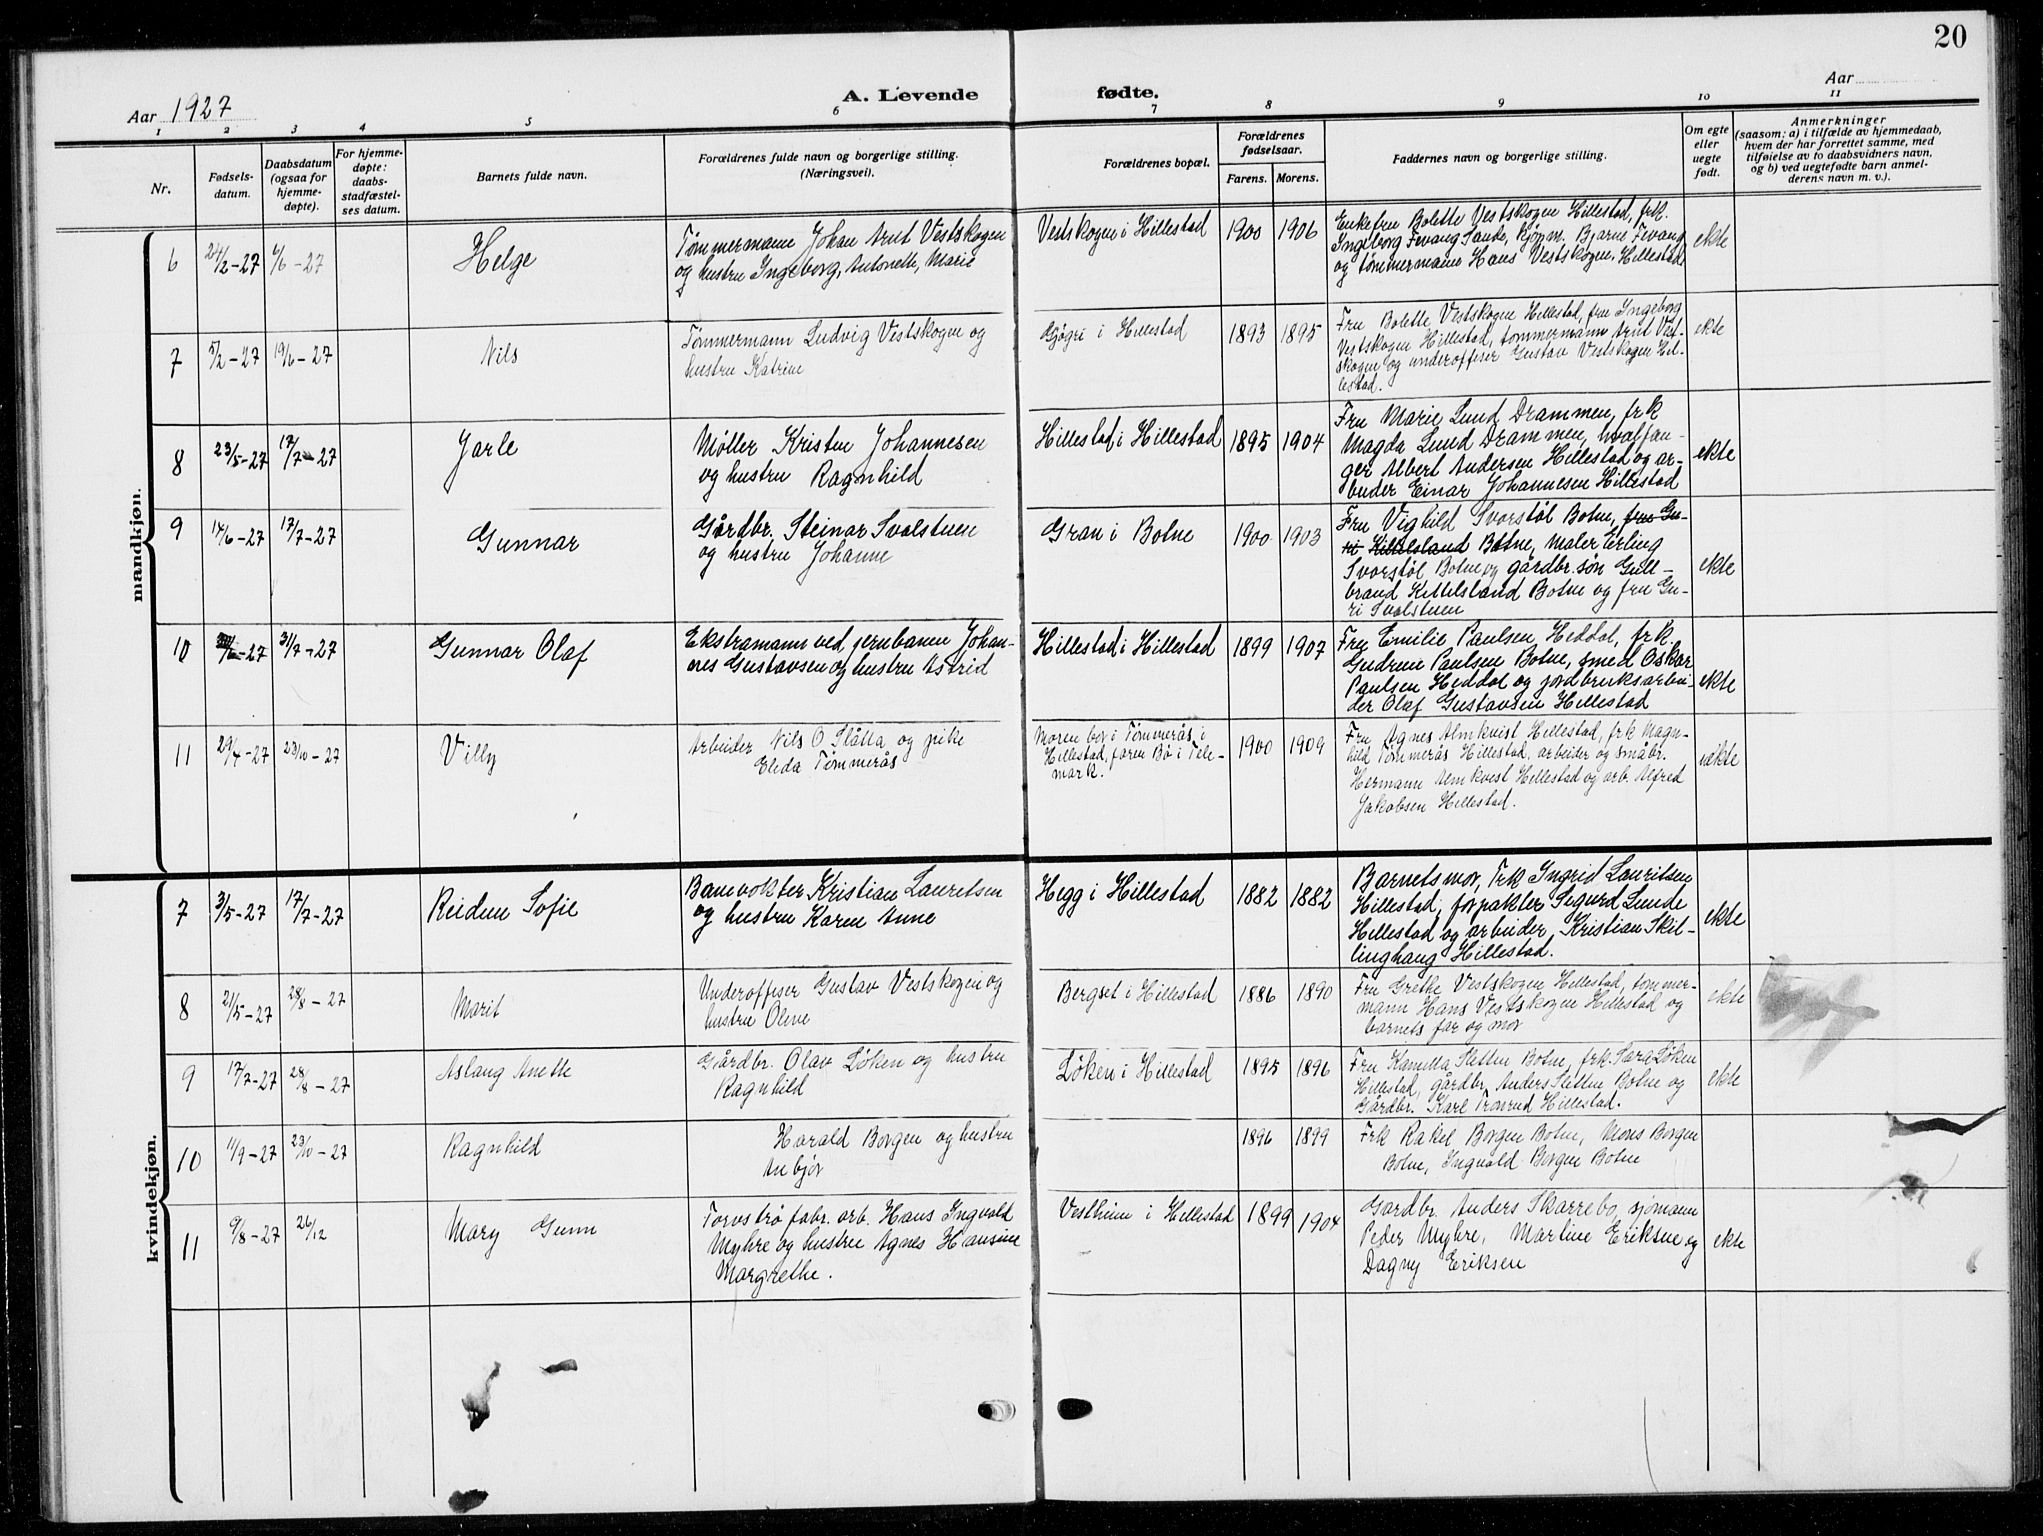 20
Aar 1927
A. Levende fødte.
Aar
1 2 3 4 5 6 7 8 9 10 11
Nr.
Fødsels-
datum.
Daabsdatum
(ogsaa for
hjemme-
døpte).
For hjemme-
døpte:
daabs-
stadfæstel-
ses datum.
Barnets fulde navn.
Forældrenes fulde navn og borgerlige stilling.
(Næringsvei).
Forældrenes bopæl.
Forældrenes
fødselsaar.
Farens. Morens.
Faddernes navn og borgerlige stilling.
Om egte
eller
uegte
født.
Anmerkninger
(saasom: a) i tilfælde av hjemmedaab,
hvem der har forrettet samme, med
tilføielse av to daabsvidners navn,
og b) ved uegtefødte barn anmel-
derens navn m. v.).
mandkjøn.
6 24/2-27 6/6-27 Helge
Tømmermann Johan Arnt Vestskogen
og hustru Ingeborg, Antonette, Marie
Vestskogen i Hillestad 1900 1906
Enkefru Bolette Vestskogen Hillestad, frk.
Ingeborg Fevang Sande, kjøpm. Bjarne Fevang
og tømmermann Hans Vestskogen, Hillestad
ekte
7 5/2-27 19/6-27 Nils
Tømmermann Ludvig Vestskogen og
hustru Katrine
Gjøgri i Hillestad 1893 1895
Fru Bolette Vestskogen Hillestad, fru Ingeborg
Vestskogen Hillestad, tømmermann Arnt Vest-
skogen og underoffiser Gustav Vestskogen Hil-
lestad.
ekte
8 23/5-27 17/7-27 Jarle
Møller Kristen Johannesen
og hustru Ragnhild
Hillestad i Hillestad 1895 1904
Fru Marie Lund Drammen, frk
Magda Lund Drammen, hvalfan-
ger Albert Andersen Hillestad og ar-
beider Einar Johannesen Hillestad
ekte
9 14/6-27 17/7-27 Gunnar
Gårdbr. Steinar Svalstuen
og hustru Johanne
Gran i Botne 1900 1903
Fru Vighild Svorstøl Botne, fru Gu-
ri Kittelsland Botne, maler Erling
Svorstøl Botne og gårdbr. søn Gull-
brand Kittilsland Botne og fru Gu-
ri Svalstuen
ekte
10 /6-27 31/7-27 Gunnar Olaf
Ekstramann ved jernbanen Johan-
nes Gustavsen og hustru Astrid
Hillestad i Hillestad 1899 1907
Fru Emilie Paulsen, Heddal, frk.
Gudrun Paulsen Botne, smed Oskar
Paulsen Heddal og jordbruksarbei-
der Olaf Gustavsen Hillestad
ekte
11 29/4-27 23/10-27 Villy
Arbeider Nils O. Slåtta og pike
Elida Tømmerås
Moren bor i Tømmerås i
Hillestad, faren Bø i Tele-
mark.
1900 1909
Fru Agnes Almkvist Hillestad, frk Magn-
hild Tømmerås Hillestad, arbeider og småbr.
Hermann Almkvist Hillestad og arb. Alfred
Jakobsen Hillestad.
uekte
kvindekjøn.
7 3/5-27 17/7-27 Reidun Sofie
Banevokter Kristian Lauritsen
og hustru Karen Anne
Hegg i Hillestad 1882 1882
Barnets mor, Frk Ingrid Lauritsen
Hillestad, forpakter Sigurd Lunde
Hillestad og arbeider, Kristian Skil-
linghaug Hillestad.
ekte
8 21/5-27 28/8-27 Marit
Underoffiser Gustav Vestskogen og
hustru Oline
Bergset i Hillestad 1886 1890
Fru Grethe Vestskogen Hillestad, tømmer-
mann Hans Vestskogen Hillestad og
barnets far og mor
ekte
9 17/7-27 28/8-27 Aslaug Anette
Gårdbr. Olav Løken og hustru
Ragnhild
Løken i Hillestad 1895 1896
Fru Kamilla Sletten Botne, frk. Sara Løken
Hillestad, gårdbr. Anders Sletten Botne og
Gårdbr. Karl Tronrud Hillestad.
ekte
10 11/9-27 23/10-27 Ragnhild
Harald Borgen og hustru
Anbjør
1896 1899
Frk Rakel Borgen Botne, Mons Borgen
Botne, Ingvald Borgen Botne
11 9/8-27 26/12 Mary Gunn
Torvstrø fabr. arb. Hans Ingvald
Myhre og hustru Agnes Hansine
Margrethe.
Vestheim i Hillestad 1899 1904
Gardbr. Anders Skarrebo, sjømann
Peder Myhre, Martine Eriksen og
Dagny Eriksen
ekte